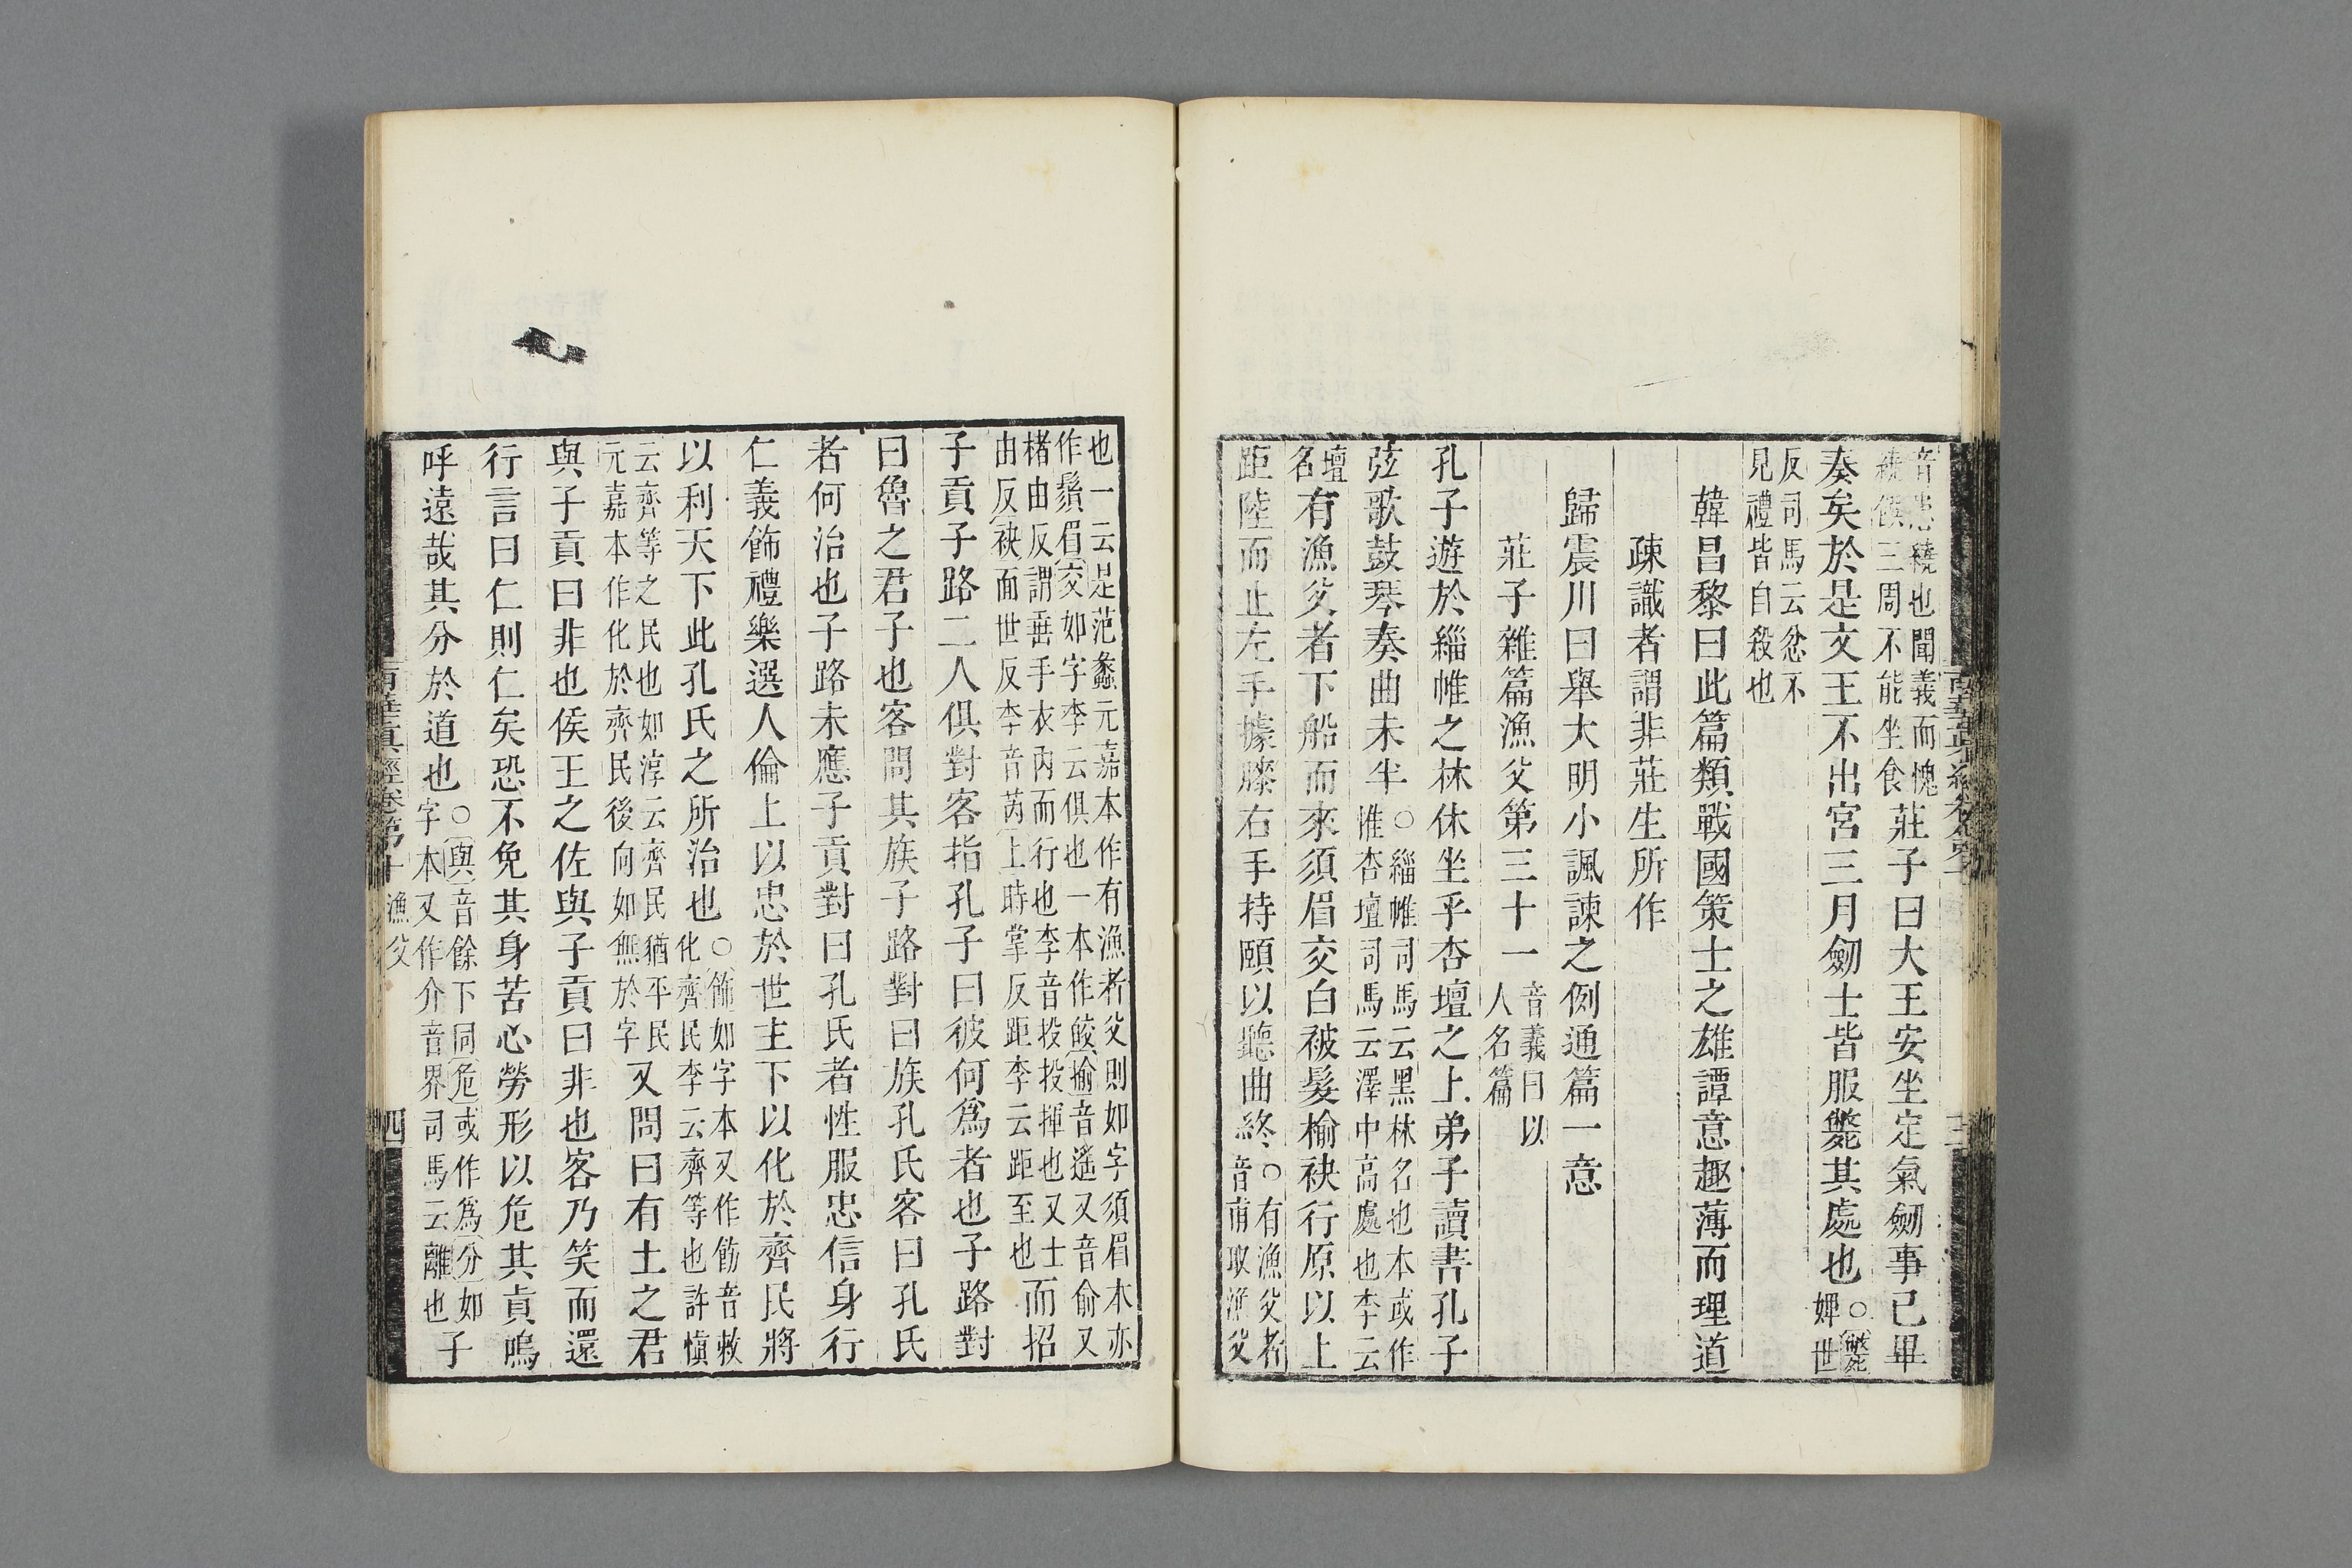 音患繞也聞義而愧
繞饌三周不能坐食莊子曰大王安坐定氣劒事已畢
奏矣於是文王不出宮三月劒士皆服斃其處也○斃
婢世
反司馬云忿不
見禮皆自殺也
韓昌黎曰此篇類戰國策士之雄譚意趣薄而理道
疎識者謂非莊生所作
歸震川曰舉大明小諷諫之例通篇一意
莊子雜篇漁父第三十一音義曰以
人名篇
孔子遊於緇帷之林休坐乎杏壇之上弟子讀書孔子
弦歌鼓琴奏曲未半○緇帷司馬云黑林名也本或作
惟杏壇司馬云澤中高處也李云
壇
名有漁父者下船而來須眉交白被髮揄袂行原以上
距陸而止左手據膝右手持頤以聽曲終○有漁父者
音甫取漁父
也一云是范蠡元嘉本作有漁者父則如字須眉本亦
作鬚眉交如字李云俱也一本作皎揄音遙又音俞又
楮由反謂垂手衣內而行也李音投投揮也又士
由反袂面世反李音芮上時掌反距李云距至也而招
子貢子路二人俱對客指孔子曰彼何爲者也子路對
曰魯之君子也客問其族子路對曰族孔氏客曰孔氏
者何治也子路未應子貢對曰孔氏者性服忠信身行
仁義飾禮樂選人倫上以忠於世主下以化於齊民將
以利天下此孔氏之所治也○飾如字本又作飭音敕
化齊民李云齊等也許愼
云齊等之民也如淳云齊民猶平民
元嘉本作化於齊民後向如無於字又問曰有土之君
與子貢曰非也侯王之佐與子貢曰非也客乃笑而還
行言曰仁則仁矣恐不免其身苦心勞形以危其眞嗚
呼遠哉其分於道也○與音餘下同危或作爲分如
字本又作介音界司馬云離也子
南華眞經卷第十 漁父 四